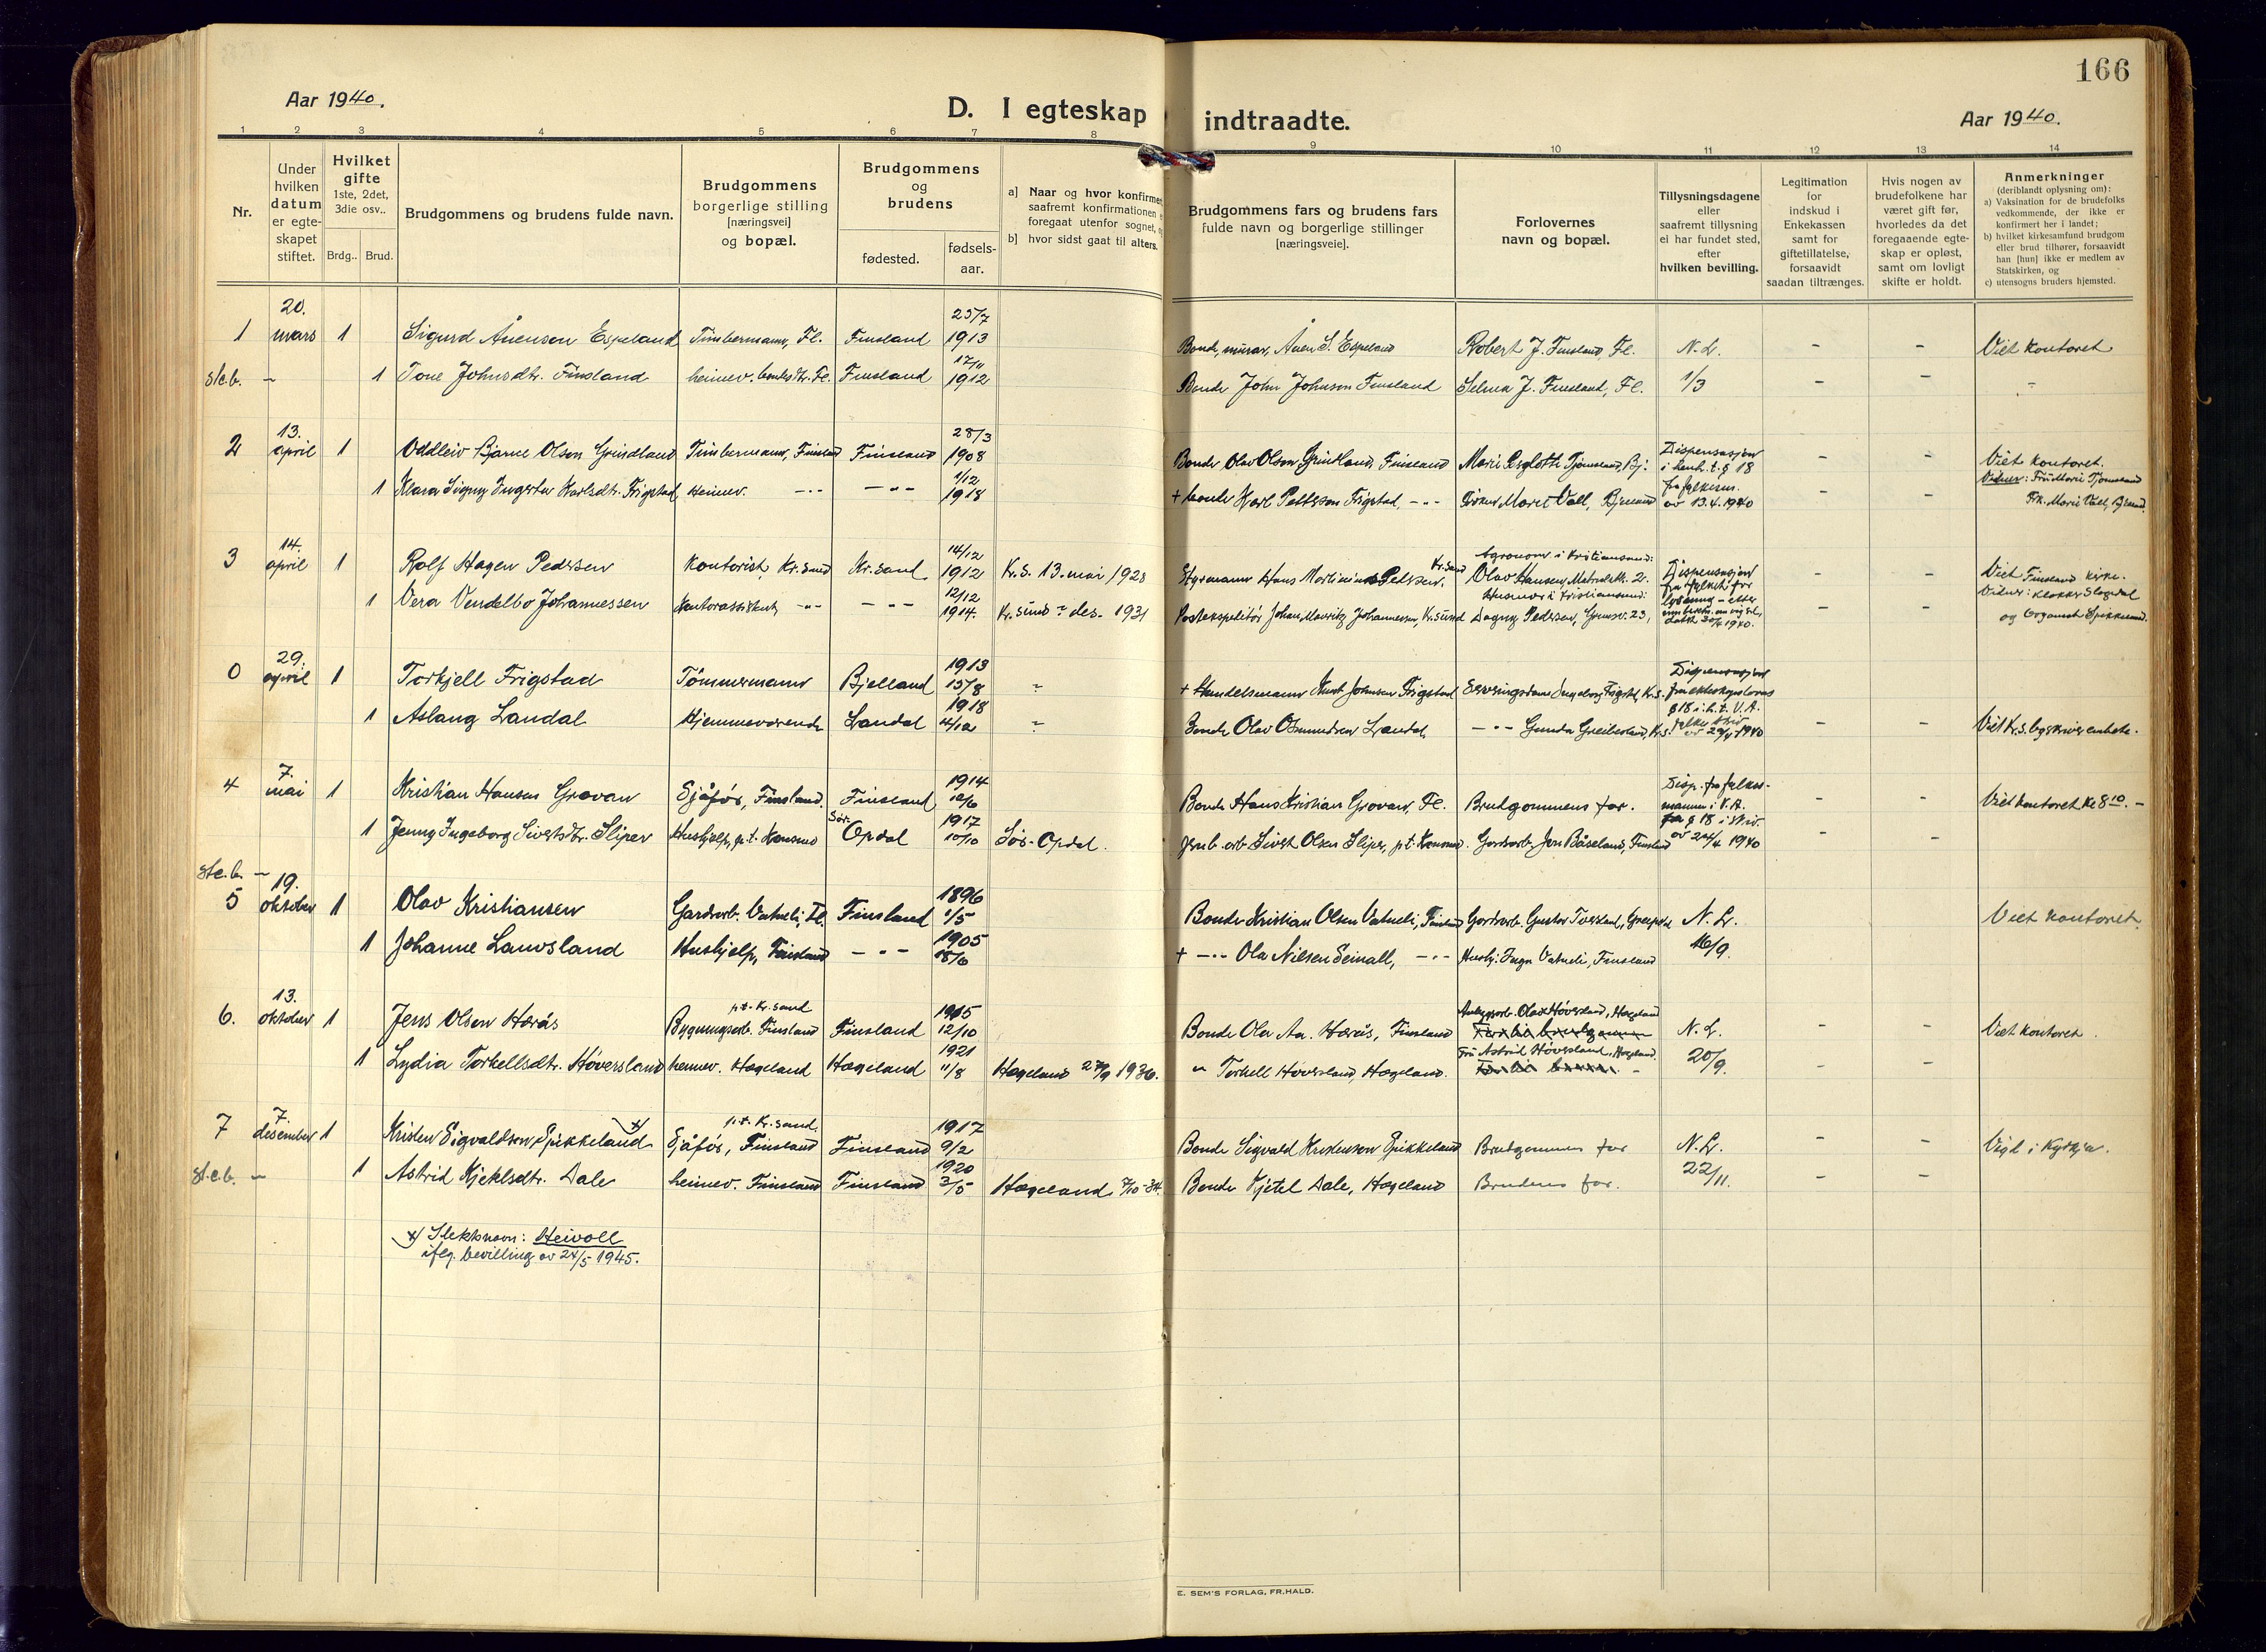 166
Aar 1940.
D. I egteskap indtraadte.
Aar 1940.
1 2 3 4 5 6 7 8 9 10 11 12 13 14
Nr.
Under hvilken datum er egte-skapet stiftet.
Hvilket gifte
1ste, 2det, 3die osv..
Brdg.. Brud.
Brudgommens og brudens fulde navn.
Brudgommens borgerlige stilling [næringsvei] og bopæl.
Brudgommens og brudens
fødested.
fødsels-aar.
a] Naar og hvor konfirmer
saafremt konfirmationen
foregaat utenfor sognet,
b] hvor sidst gaat til alters.
Brudgommens fars og brudens fars
fulde navn og borgerlige stillinger
[næringsveie].
Forlovernes
navn og bopæl.
Tillysningsdagene
eller
saafremt tillysning
ei har fundet sted,
efter
hvilken bevilling.
Legitimation
for
indskud i
Enkekassen
samt for
giftetillatelse,
forsaavidt
saadan tiltrænges.
Hvis nogen av
brudefolkene har
været gift før,
hvorledes da det
foregaaende egte-
skap er opløst,
samt om lovligt
skifte er holdt.
Anmerkninger
(deriblandt oplysning om):
a) Vaksination for de brudefolks
vedkommende, der ikke er
konfirmert her i landet;
b) hvilket kirkesamfund brudgom
eller brud tilhører, forsaavidt
han [hun] ikke er medlem av
Statskirken, og
c) utensogns bruders hjemsted.
1 20. mars 1 Sigurd Ånenson Espeland Timbermann, Fl. Finsland 23/7 1913 Bonde, murar, Ånen S. Espeland Robert J. Finsland, Fl. N.L. - - Viet kontoret
st.e.b. - 1 Tone Johnsdtr. Finsland heimev. bondedtr. Fl. Finsland 17/11 1912 Bonde John Johnson Finsland Selma J. Finsland, Fl. 1/3 - - -
2 13. april 1 Oddleiv Bjarne Olson Grindland Timbermann, Finsland Finsland 28/3 1908 Bonde Olav Olson Grindland, Finsland Marie Tjomsland, Bj. Dispensasjon i henh. t. § 18 - - Viet kontoret.
1 Klara Signy Ingertha Karlsdtr. Frigstad Heimev. -"- -"- 1/12 1918 + bonde Karl Pettersson Frigstad, -"- Marie Vall, Bjelland fra fylkesm. av 13.4.1940 - - Vidner: Fru Marie Tjomsland
Frk. Marie Vall, Bjelland.
3 14. april 1 Rolf Hagen Pedersen Kontorist, Kr.sand Kr.sand 14/12 1912 Kr.S. 13. mai 1928 Styrmann Hans Martinius Pedersen, Kr.sand Agronom i Kristiansand: Olav Hansen, 2. Dispensasjon fra fylket for lysning - etter - - Viet Finsland kirke.
1 Vera Vendelbo Johannessen Kontorassistent, -"- -"- 12/12 1914. Kr.sund des. 1931 Postekspeditør Johan Mauritz Johannessen, Kr.sund Husmor i Kristiansund: Dagny Pedersen, 23, datert 30/4 1940. - - Vidner: Klokker Slogedal
og Organist Spikkeland.
0 29. april 1 Torkjell Frigstad Tømmermann Bjelland 1913 15/8 - + Handelsmann Knut Johnsen Frigstad Ingeborg Frigstad, Kr.S. Dispensasjon fra ekteskapslovens
1 Aslaug Landal Hjemmeværende Landal 1918 4/12 - Bonde Olav Osmundsen Landal -"- Gunda Greibesland, Kr.S. § 18 i.h.t. V.A. fylkes skriv av 29/4 1940 - - Viet Kr.S. byskriverembete.
4 7. mai 1 Kristian Hansen Grovan Sjåfør, Finsland. Finsland 1914 Bonde Hans Kristian Grovan, Fl. Brudgommens far. Disp. fra fylkes-mannen i V.A. - - Viet kontoret kl 8 10. -
1 Jenny Ingeborg Sivertsdtr. Sliper Hushjelp, p.t. Sør-Opdal 1917 10/10 Sør-Opdal. Jernb. arb. Sivert Olsen Sliper, p.t. Gardsarb. Jon Båseland, Finsland § 18 i skriv. av 24/4 1940 - -
st.e.b. -
5 19. oktober 1 Olav Kristiansen Gardsarb. Vatneli, Fl. Finsland 1896 1/5 Bonde Kristian Olsen Vatneli, Finsland Gardsarb. Gustav Tveitland, N.L. Viet kontoret.
1 Johanne Lauvsland Hushjelp, Finsland -"- 1905 18/6 + -"- Ola Nilsen Seivall, -"- Hushj. Inga Vatneli, Finsland 16/9.
6. 13. oktober 1 Jens Olsen Hærås p.t. Kr.sand Bygningsarb. Finsland Finsland 1915 12/10 Bonde Ola Aa. Hærås, Finsland Anleggsarb. Olav Høversland, Hægeland N.L. - - Viet kontoret.
1 Lydia Torkellsdtr. Høversland heimev. Hægeland Hægeland 1921 11/8 Hægeland 27/9 1936. " Torkell Høversland, Hægeland. Fru Astrid Høversland, Hægeland. 20/9. -
7 7. desember 1 Kristen Sigvaldson Spikkeland x) p.t. Kr.sand. Sjåfør, Finsland Finsland 1917 9/2 Bonde Sigvald Kristenson Spikkeland Brudgommens far N.L. - - Vigd i kyrkja.
st.e.b. - 1 Astrid Kjeklsdtr. Dale heimev. Finsland Finsland 1920 3/5 Hægeland 7/10-34. Bonde Kjetel Dale, Hægeland Brudens far. 22/11. - -
x) Slektsnavn: Heivoll
iflg. bevilling av 24/5 1945.
E. SEM'S FORLAG, FR.HALD.